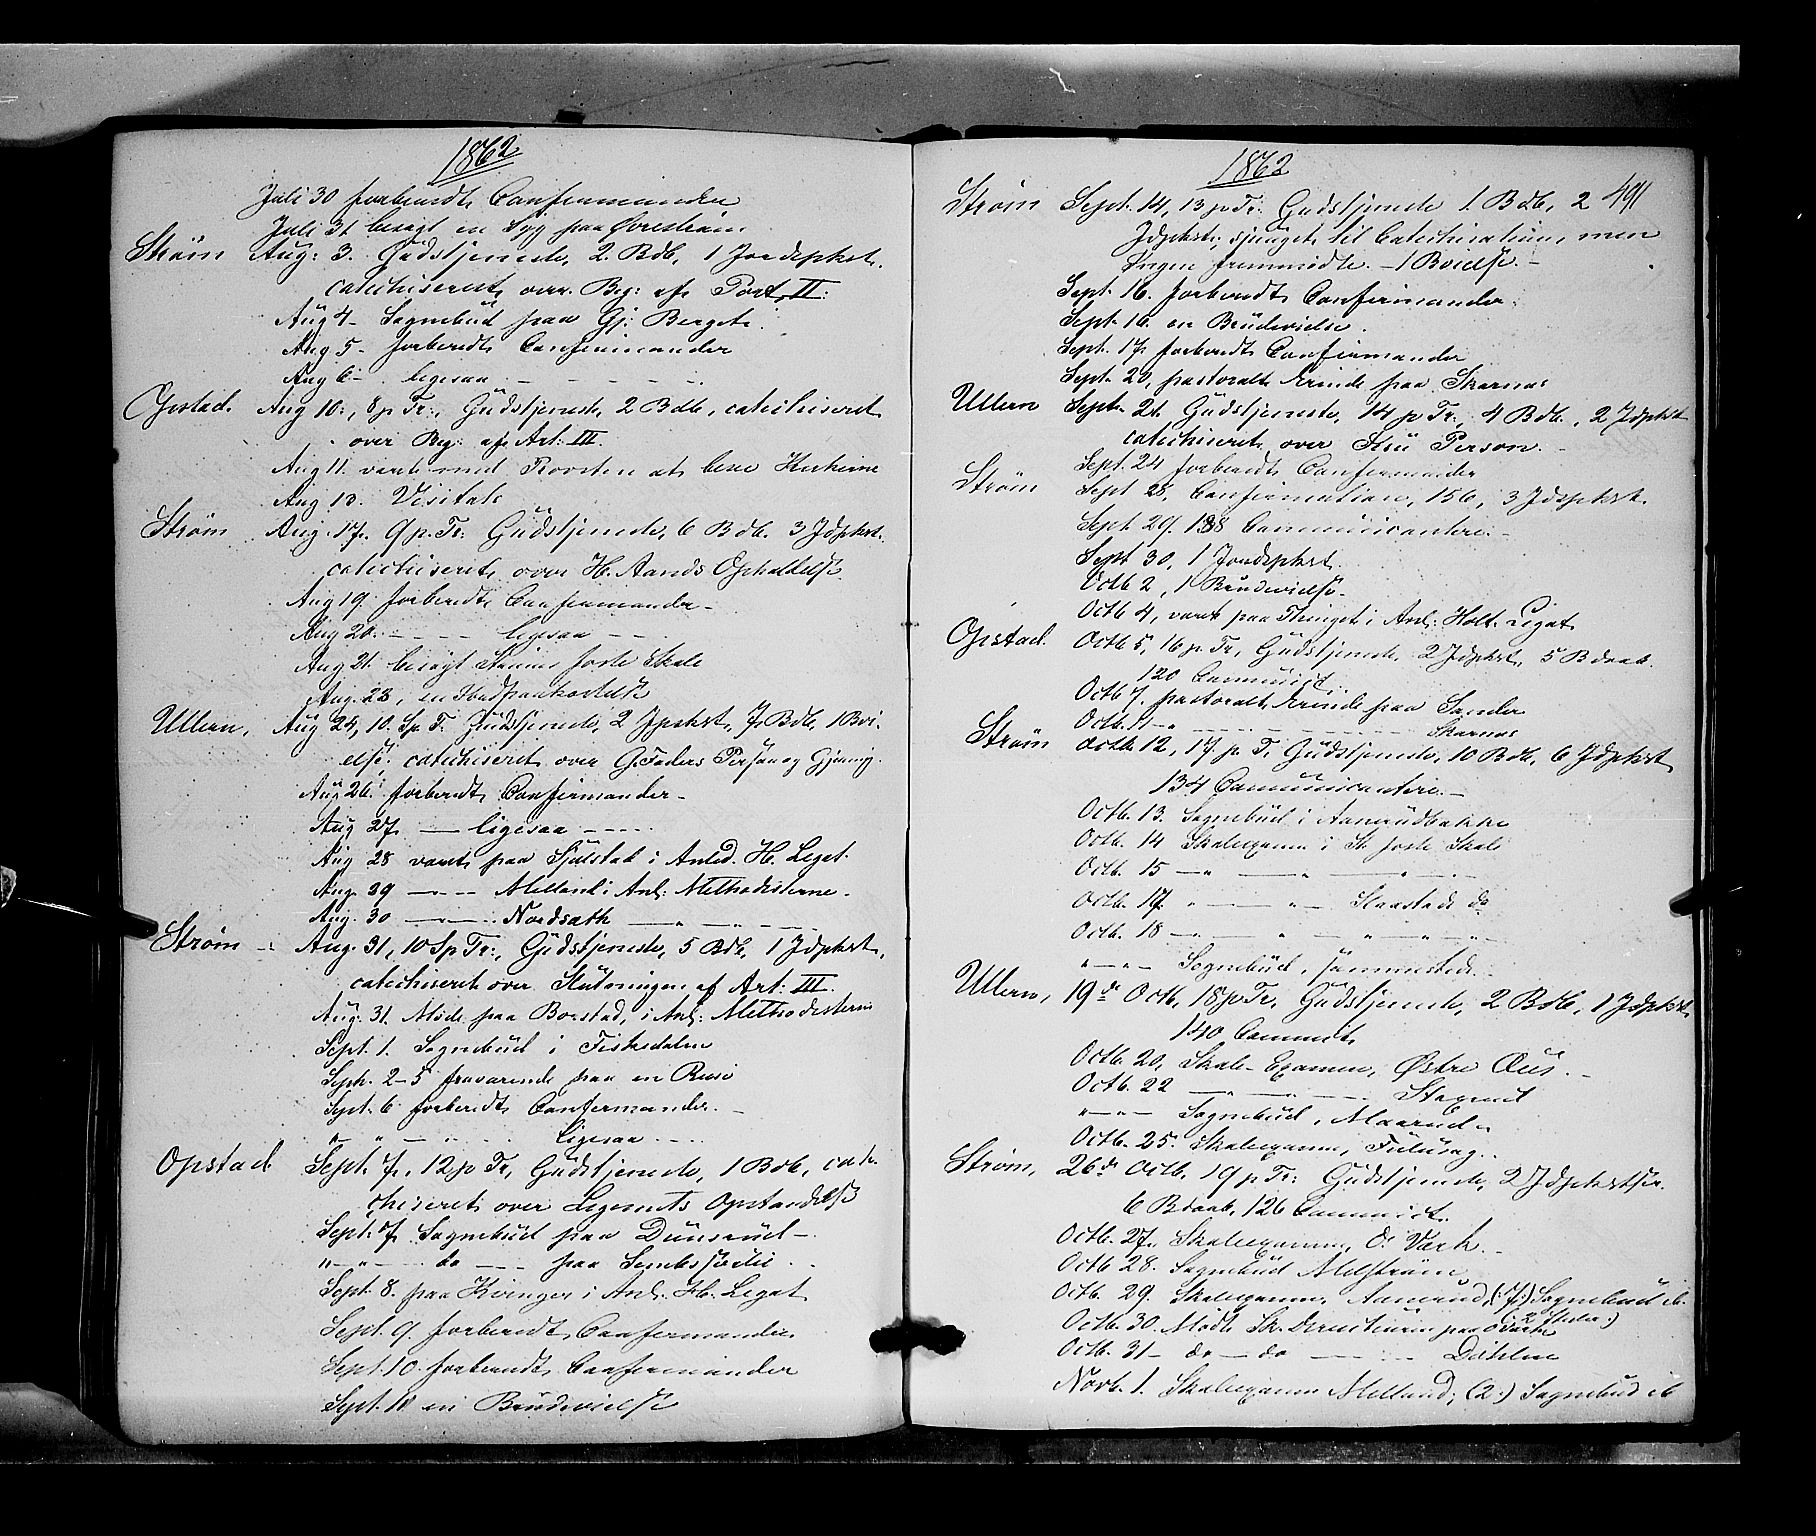 1862
Juli 30 forberedt Confirmander
Juli 31 besøgt en Syg paa
Strøm Aug: 3. Gudstjeneste, 2 Bdb, 1 Jordspkst.
catechiseret over Beg: af Part. II:
Aug 4 - Sognebud paa Gj: Berget.
Aug 5 - forberedt Confirmander
Aug 6 - ligesaa - - - - -
Opstad. Aug 10:, 8 p Tr:, Gudstjeneste, 2 Bdb, catechiseret
over Beg: af Art: III.
Aug 11. været med Provsten at bese Kirkerne
Aug 13. Visitats
Strøm Aug. 17. 9 p. Tr: Gudstjeneste, 6 Bdb. 3 Jdpkst.
catechiseret over H. Aands Opholdelse.
Aug 19. forberedt Confirmander -
Aug 20. - - - - ligesaa - -
Aug 21. besøgt faste Skole
Aug. 23, en
Ullern, Aug 24, 10. Sp T. Gudstjeneste, 2 Jpkst, 7 Bdb, 1 Bvi-
else, catechiseret over G. Faders Person og Gjerning.
Aug 26. forberedt Confirmander -
Aug 27 — ligesaa - - - -
Aug 28 været paa Sjulstad i Anled. H. Legat.
Aug. 29 — „ — Melland i Anl: Methodisterne.
Aug. 30 — „ — Nordsæth — „ — „ —
Strøm - Aug. 31, 10 Sp Tr:, Gudstjeneste, 5 Bdb, 1 Jdpkst,
catechiseret over Slutningen af Art: III.
Aug. 31. Møde paa Borstad, i Anl: Methodisterne
Sept. 1. Sognebud i Fiskedalen
Sept. 2-5 fraværende paa en Reise
Sept. 6 forberedt Confirmander. -
„ „ - „ - ligesaa - - -
Opstad Sept. 7, 12 p Tr, Gudstjeneste, 1 Bdb, cate-
chiseret over Legemets Opstandelse
Sept. 7 Sognebud paa Dunserud -
„ - „ - do - - paa
Sept. 8. paa Kvinger i Anl: H. Legat
Sept. 9. forberedt Confirmander.
Sept. 10. forberedt Confirmander
Sept. 11 en Brudevielse
1862
491
Strøm Sept. 14, 13 p Tr: Gudstjeneste 1 Bdb, 2
Jdpkst, til Catechisation, men
Ingen fremmødte. - 1 Bvielse. -
Sept. 16. forberedt Confirmander.
Sept. 16. en Brudevielse.
Sept. 17 forberedt Confirmander
Sept. 20, pastoralt Ærinde paa Skarnæs
Ullern Sept. 21. Gudstjeneste, 14 p Tr, 4 Bdb., 2 Jdpkst
catechiseret over Jesu Person. -
Sept. 24 forberedt Confirmander
Strøm Sept 28, Confirmation, 156, 3 Jdspkst.
Sept 29. 138 Communicantere. -
Sept 30, 1 Jordspkst.
Octb 2, 1 Brudevielse -
Octb 4, været paa Thinget i Anl: Holt. Legat
Opstad. Octb 5, 16 p Tr, Gudstjeneste, 2 Jdpkst, 5 Bdaab.
120 Communic.
Octb 7. pastoralt Ærinde paa Sander
Octb. 11 - „ - - - - - Skarnæs
Strøm Octb. 12, 17 p. T. Gudstjeneste, 10 Bdb, 6 Jdpkst
134 Communicantere. -
Octb. 13. Sognebud i Aamrudbakke
Octb. 14 Skoleexamen i St. faste Skole
Octb. 15 — „ — „ — „ —
Octb. 17. „ — „ — Slaastad do
Octb. 18 — „ — „ — „ — „ —
„ - „ - Sognebud,
Ullern, 19de Octb, 18 p Tr, Gudstjeneste, 2 Bdb, 1 Jdpkst.
140 Commct.
Octb. 20, Skole-Examen, Østre Æus. -
Octb. 22 — „ — „ —
„ - „ - Sognebud, Maarud -
Octb. 25. Skoleexamen, Fuluseg..
Strøm, 26de Octb, 19 p Tr: Gudstjeneste, 2 Jdpkstser.
6 Bdaab, 126 Communict.
Octb. 27, Skoleexamen, O. Værk. -
Octb. 28. Sognebud Melstrøm
Octb. 29. Skoleexamen, Aamrud, Sognebud ib.
2 Steder:)
Octb. 30. Møde Sk. paa
Octb. 31 - do - do - - - Døhlen
Novb. 1. Skoleexamen Melland; (2:) Sognebud ib